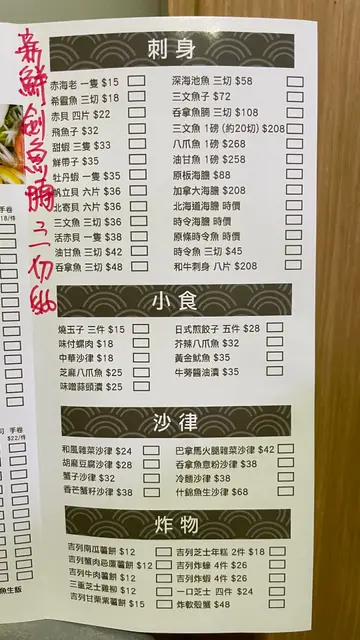 新鮮劍魚腩三切
手卷
18/件
司 手卷
$22/件
魚生飯
刺身
赤海老 一隻 $15
希靈魚 三切 $18
赤貝 四片 $22
飛魚子 $32
甜蝦 三隻 $33
鮮帶子 $35
牡丹蝦 一隻 $35
帆立貝 六片 $36
北寄貝 六片 $36
三文魚 三切 $36
活赤貝 一隻 $38
油甘魚 三切 $42
吞拿魚 三切 $48
深海池魚 三切 $58
三文魚子 $72
吞拿魚腩 三切 $108
三文魚 1磅 (約20切) $208
八爪魚 1磅 $268
油甘魚 1磅 $258
原板海膽 $88
加拿大海膽 $208
北海道海膽 時價
時令海膽 時價
原條時令魚 時價
時令魚 三切 $45
和牛刺身 八片 $208
小食
燒玉子 三件 $15
味付螺肉 $18
中華沙律 $18
芝麻八爪魚 $25
味噌蒜頭漬 $25
日式煎餃子 五件 $28
芥辣八爪魚 $32
黃金魷魚 $35
牛蒡醬油漬 $35
沙律
和風雜菜沙律 $24
胡麻豆腐沙律 $28
蟹子沙律 $32
香芒蟹籽沙律 $38
巴拿馬火腿雜菜沙律 $42
吞拿魚意粉沙律 $38
冷麵沙律 $38
什錦魚生沙律 $68
炸物
吉列南瓜薯餅 $12
吉列蟹肉忌廉薯餅 $12
吉列牛肉薯餅 $12
三重芝士雞柳 $12
吉列甘栗紫薯餅 $15
吉列芝士年糕 2件 $18
吉列炸蠔 4件 $26
吉列炸蝦 4件 $26
一口芝士 四件 $24
炸軟殼蟹 $48